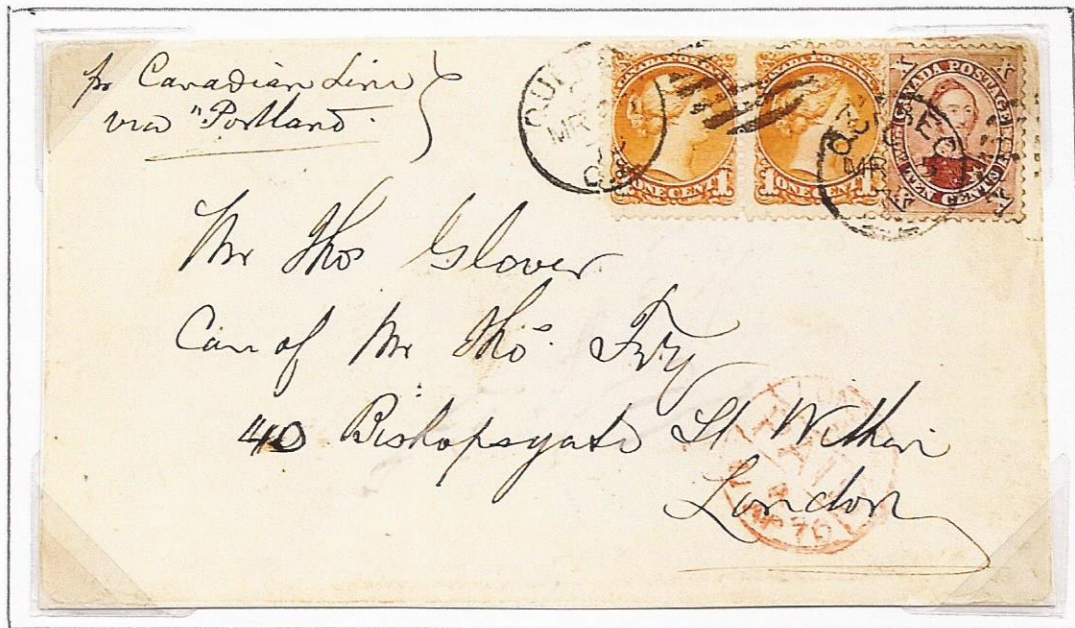 pr Canadian Line
via "Portland"
CANADA POSTAGE
ONE CENT 1
CANADA POSTAGE
1 ONE CENT 1
CANADA POSTAGE
QUEBEC
MR
Mr Thos Glover
Care of Mr Thos Fry
40 Bishopsgate St Within
London
AP 70